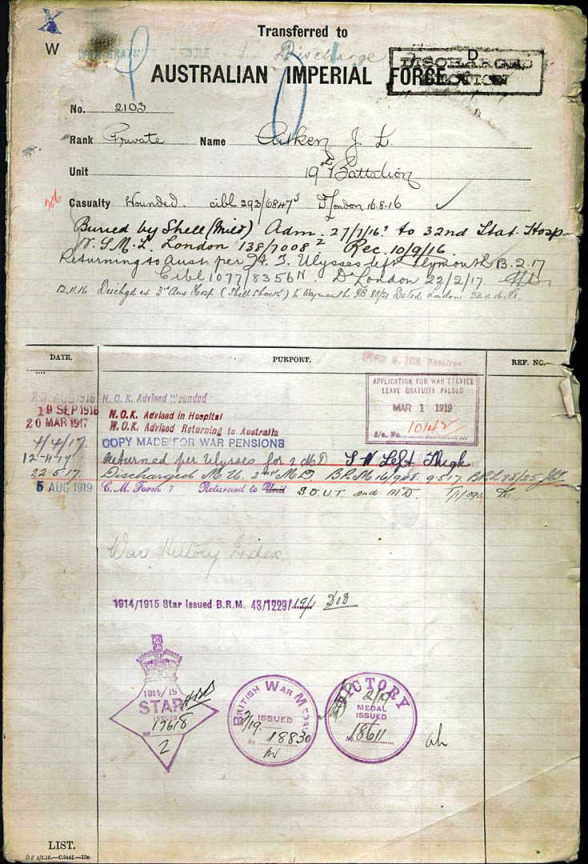 X
W
Transferred to
Discharge
AUSTRALIAN IMPERIAL FORCE
D
DISCHARGED
SECTION
No. 2103
Rank Private Name Aitken J. L.
Unit 19th Battalion
Casualty Wounded. cibl 293/6847 D/London 16.8.16
Buried by Shell (Mild) Adm. 27/7/16 to 32nd Stat. Hosp
London 138/7008 Rec. 10/9/16
Returning to Aust. per H. T. Ulysses left Plymouth 13.2.17
Cibl 1077/8356 D London 22/2/17
12.11.16 Dischgd ex 3rd Aux Hosp (Shell Shock) to Weymouth Dated London
DATE.
PURPORT.
REF. NO.
AUG 1916 N. O. K. Advised Wounded
19 SEP 1916 N. O. K. Advised in Hospital
20 MAR 1917 N. O. K. Advised Returning to Australia
4/4/17. COPY MADE FOR WAR PENSIONS
APPLICATION FOR WAR SERVICE
LEAVE GRATUITY PASSED
MAR 1 1919
10142
12-4-17 Returned per Ulysses for 2 M.D. Left Thigh
22.5.17 Discharged M. U. 2nd M.D.
5 AUG 1919 C. M. Form Returned to Unit B.O.U.T. and M.D.
War History Index
1914/1915 Star Issued B.R.M. 43/1229/
1914/15
STAR
17618
2
BRITISH WAR MEDAL
ISSUED
18830
VICTORY
MEDAL
ISSUED
18611
LIST.